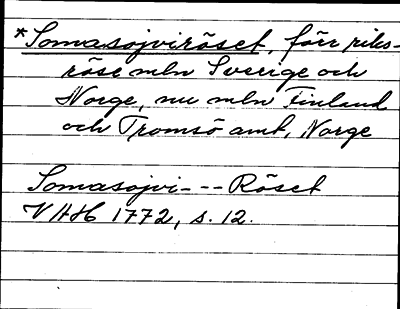 *Somasojviröset, förr riks-
röse mln Sverige och
Norge, nu mln Finland
och Tromsö amt, Norge
Somasojvi--- Röset
VHH 1772, s. 12.